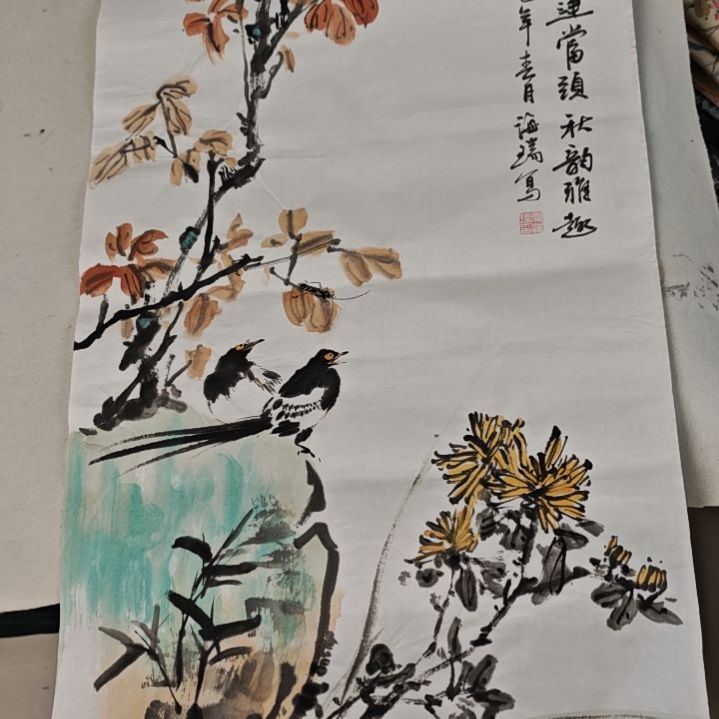 運當頭 秋韵雅趣
年春月海瑞写